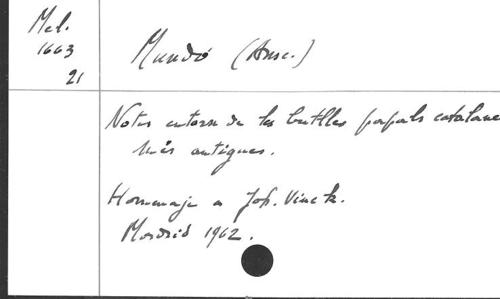 Mel.
1663
21
Mundó (Ansc.)
Notes entorn de les butlles papals catalanes
més antigues.
Homenaje a Joh. Vinck.
Madrid 1962.